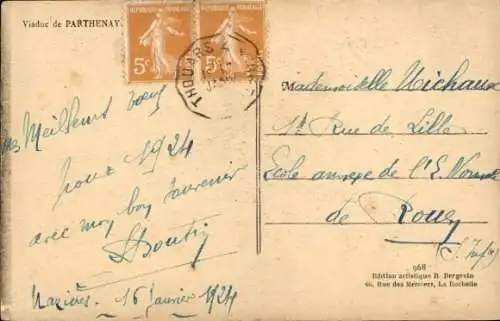 Viaduc de PARTHENAY.
REPUBLIQUE FRANÇAISE
REPUBLIQUE FRANÇAISE
5c
5c
THOUARS
Meilleurs vœux
pour 1924
avec mon bon souvenir
16 Janvier 1924
Mademoiselle Michaux
Rue de Lille
Ecole annexe de l'E. Normale
de Rouen
(S. Infre)
968
Edition artistique R. Bergevin
Rue des Merciers, La Rochelle